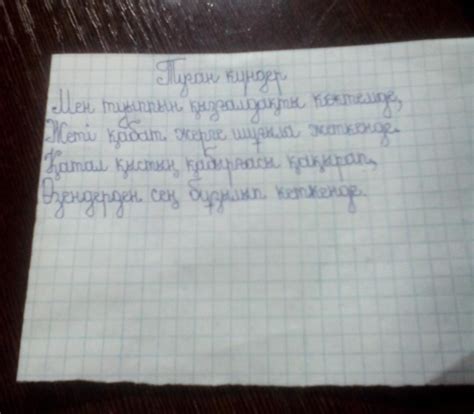 Туған күндер
Мен туыппын қызғалдақты көктемде,
Жеті қабат жерге шуғыла жеткенде.
Қатал қыстың қабырғасы қақырап,
Өзендерден сең бұзылып кеткенде.